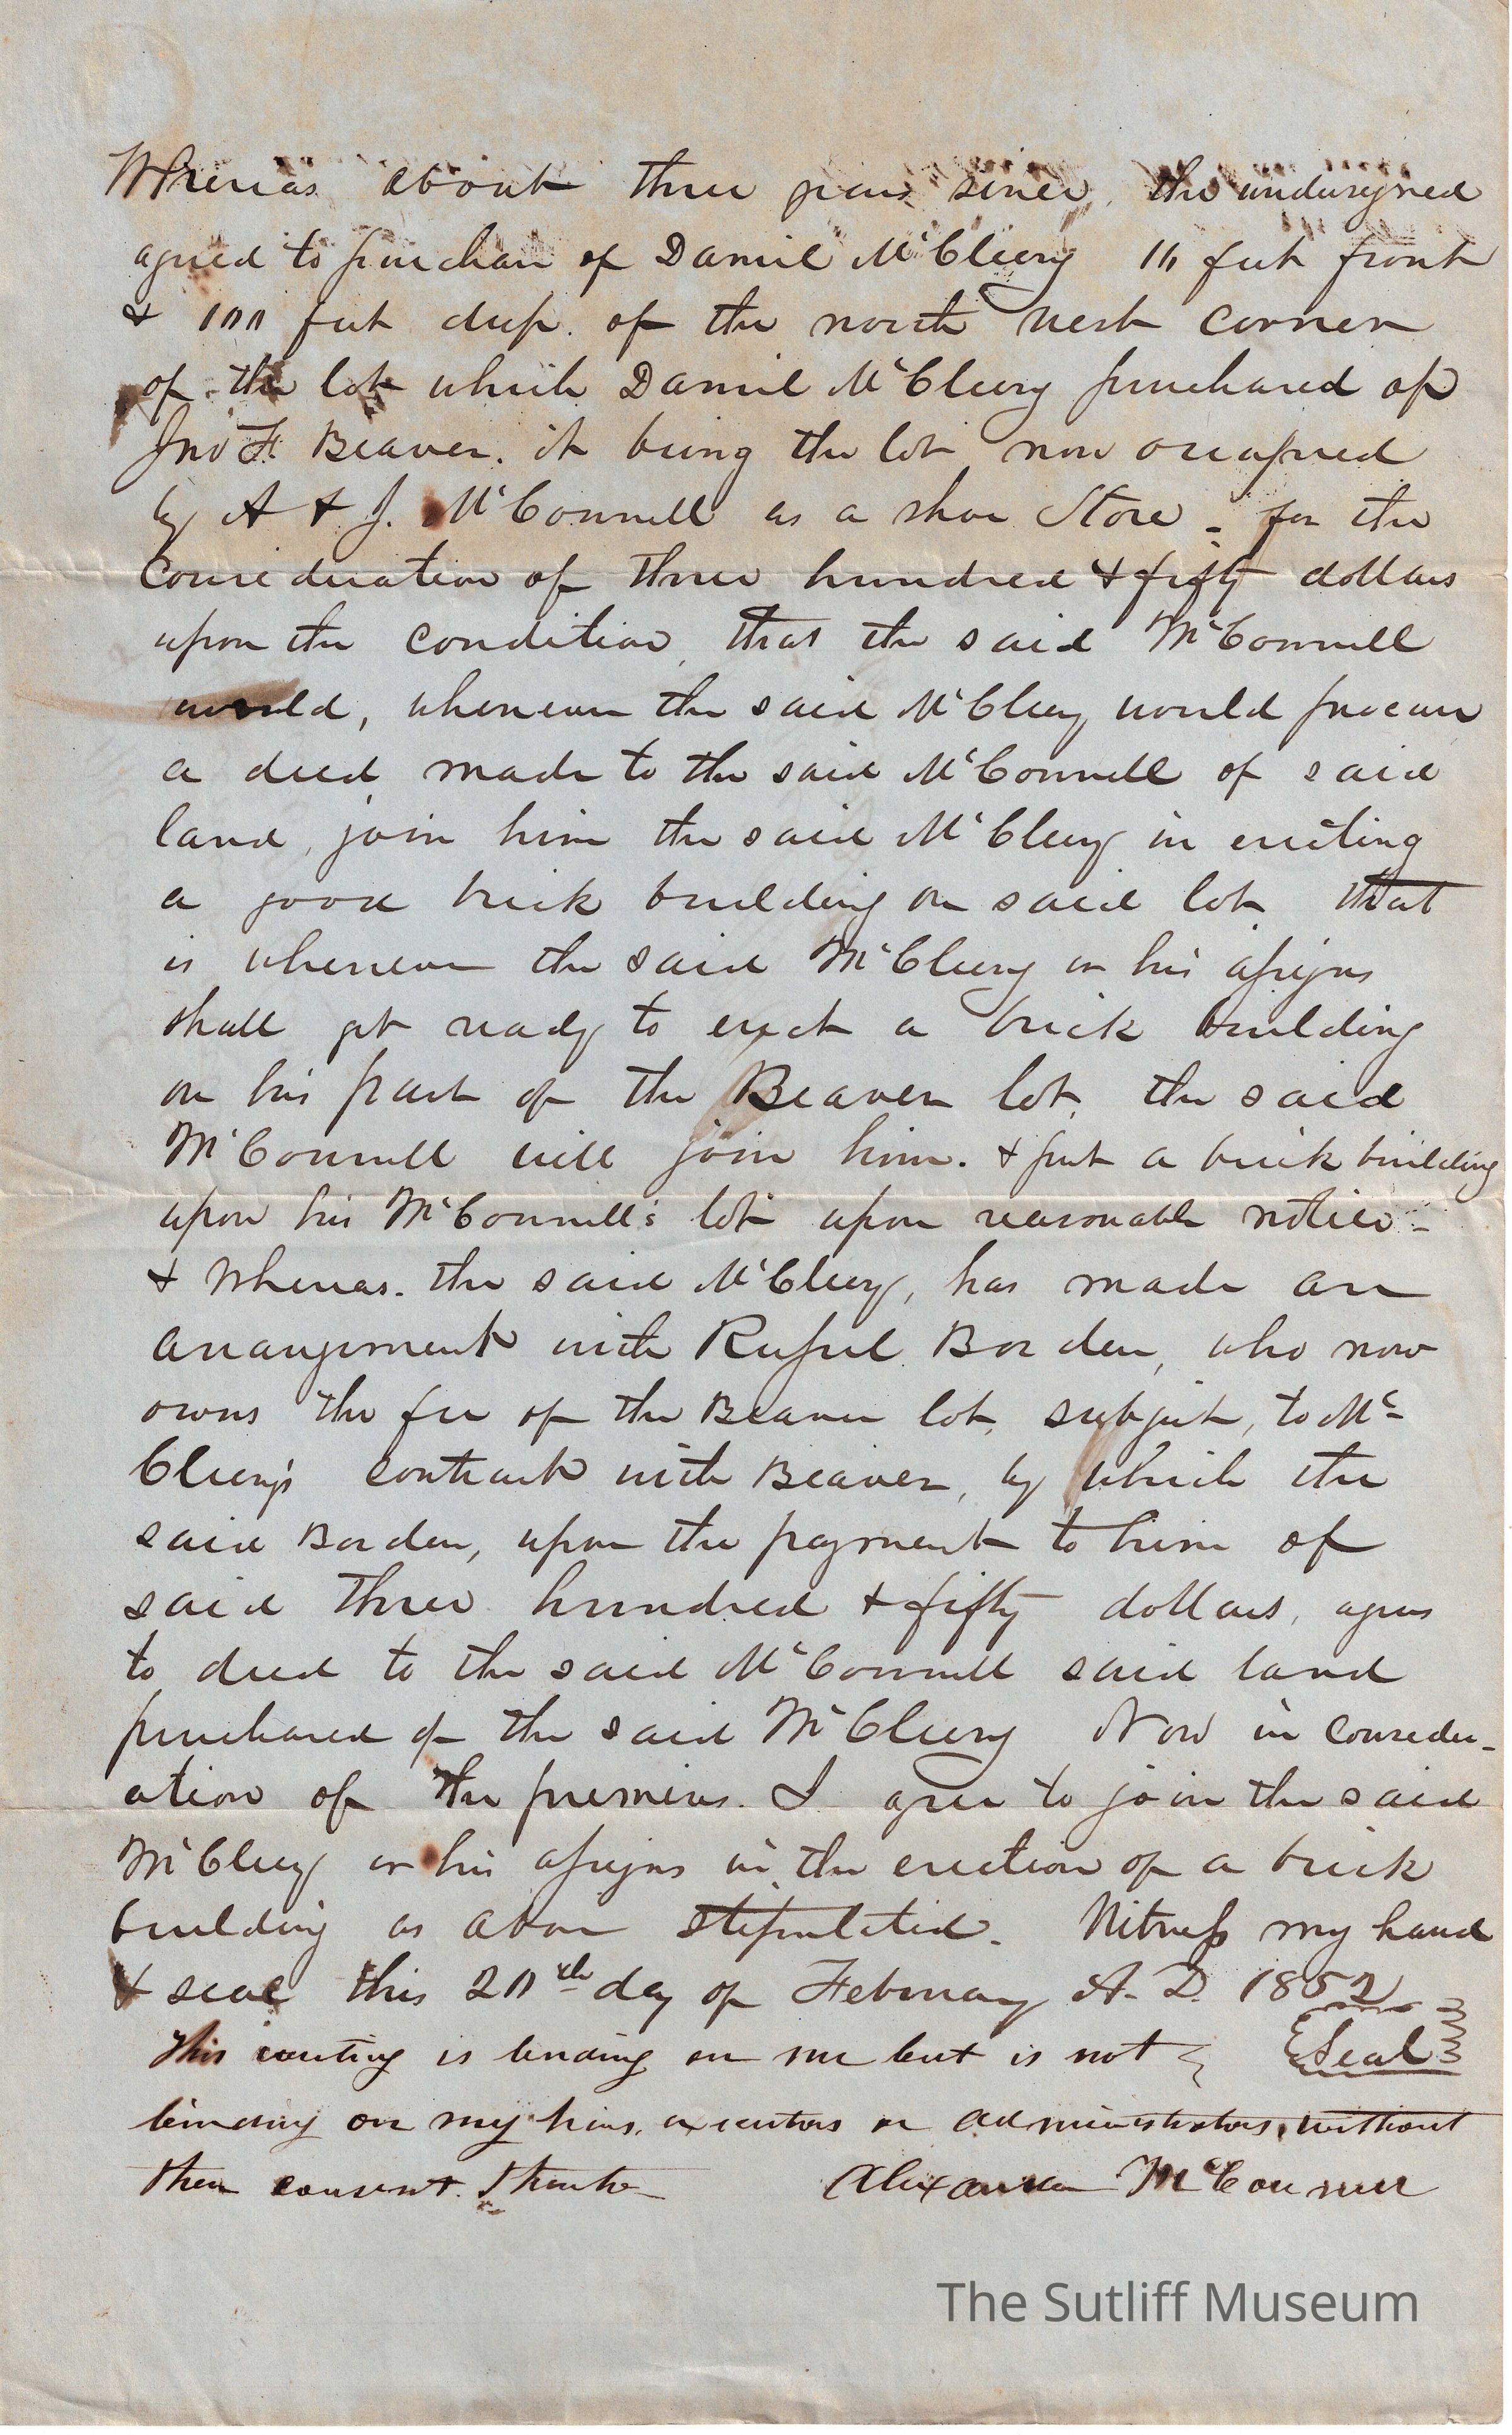 Whereas about three years since, the undersigned
agreed to purchase of Daniel McCleery 16 feet front
& 100 feet deep. of the north west corner
of the lot which Daniel McCleery purchased of
Jno F. Beaver. it being the lot now occupied
by A & J. McConnell as a shoe Store - for the
consideration of three hundred & fifty dollars
upon the condition, that the said McConnell
would, whenever the said McCleery would procure
a deed made to the said McConnell of said
land, join him the said McCleery in erecting
a good brick building on said lot that
is whenever the said McCleery or his assigns
shall get ready to erect a brick building
on his part of the Beaver lot, the said
McConnell will join him. & put a brick building
upon his McConnell's lot upon reasonable notice -
& Whereas. the said McCleery, has made an
arrangement with Borden, who now
owns the fee of the Beaver lot, subject, to Mc-
Cleery's contract with Beaver, by which the
said Borden, upon the payment to him of
said three hundred & fifty dollars, agrees
to deed to the said McConnell said land
purchased of the said McCleery Now in consider-
ation of the premises. I agree to join the said
McCleery or his assigns in the erection of a brick
building as above stipulated. Witness my hand
& seal this 20th day of February A. D. 1852
This writing is binding on me but is not Seal
binding on my heirs, executors or administrators, without
their consent. Alexander McConnell
The Sutliff Museum